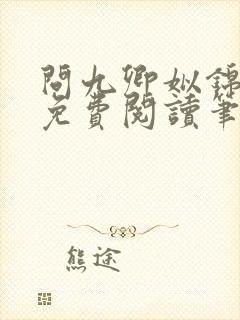 問九卿姒錦
免費閱讀筆
熊途